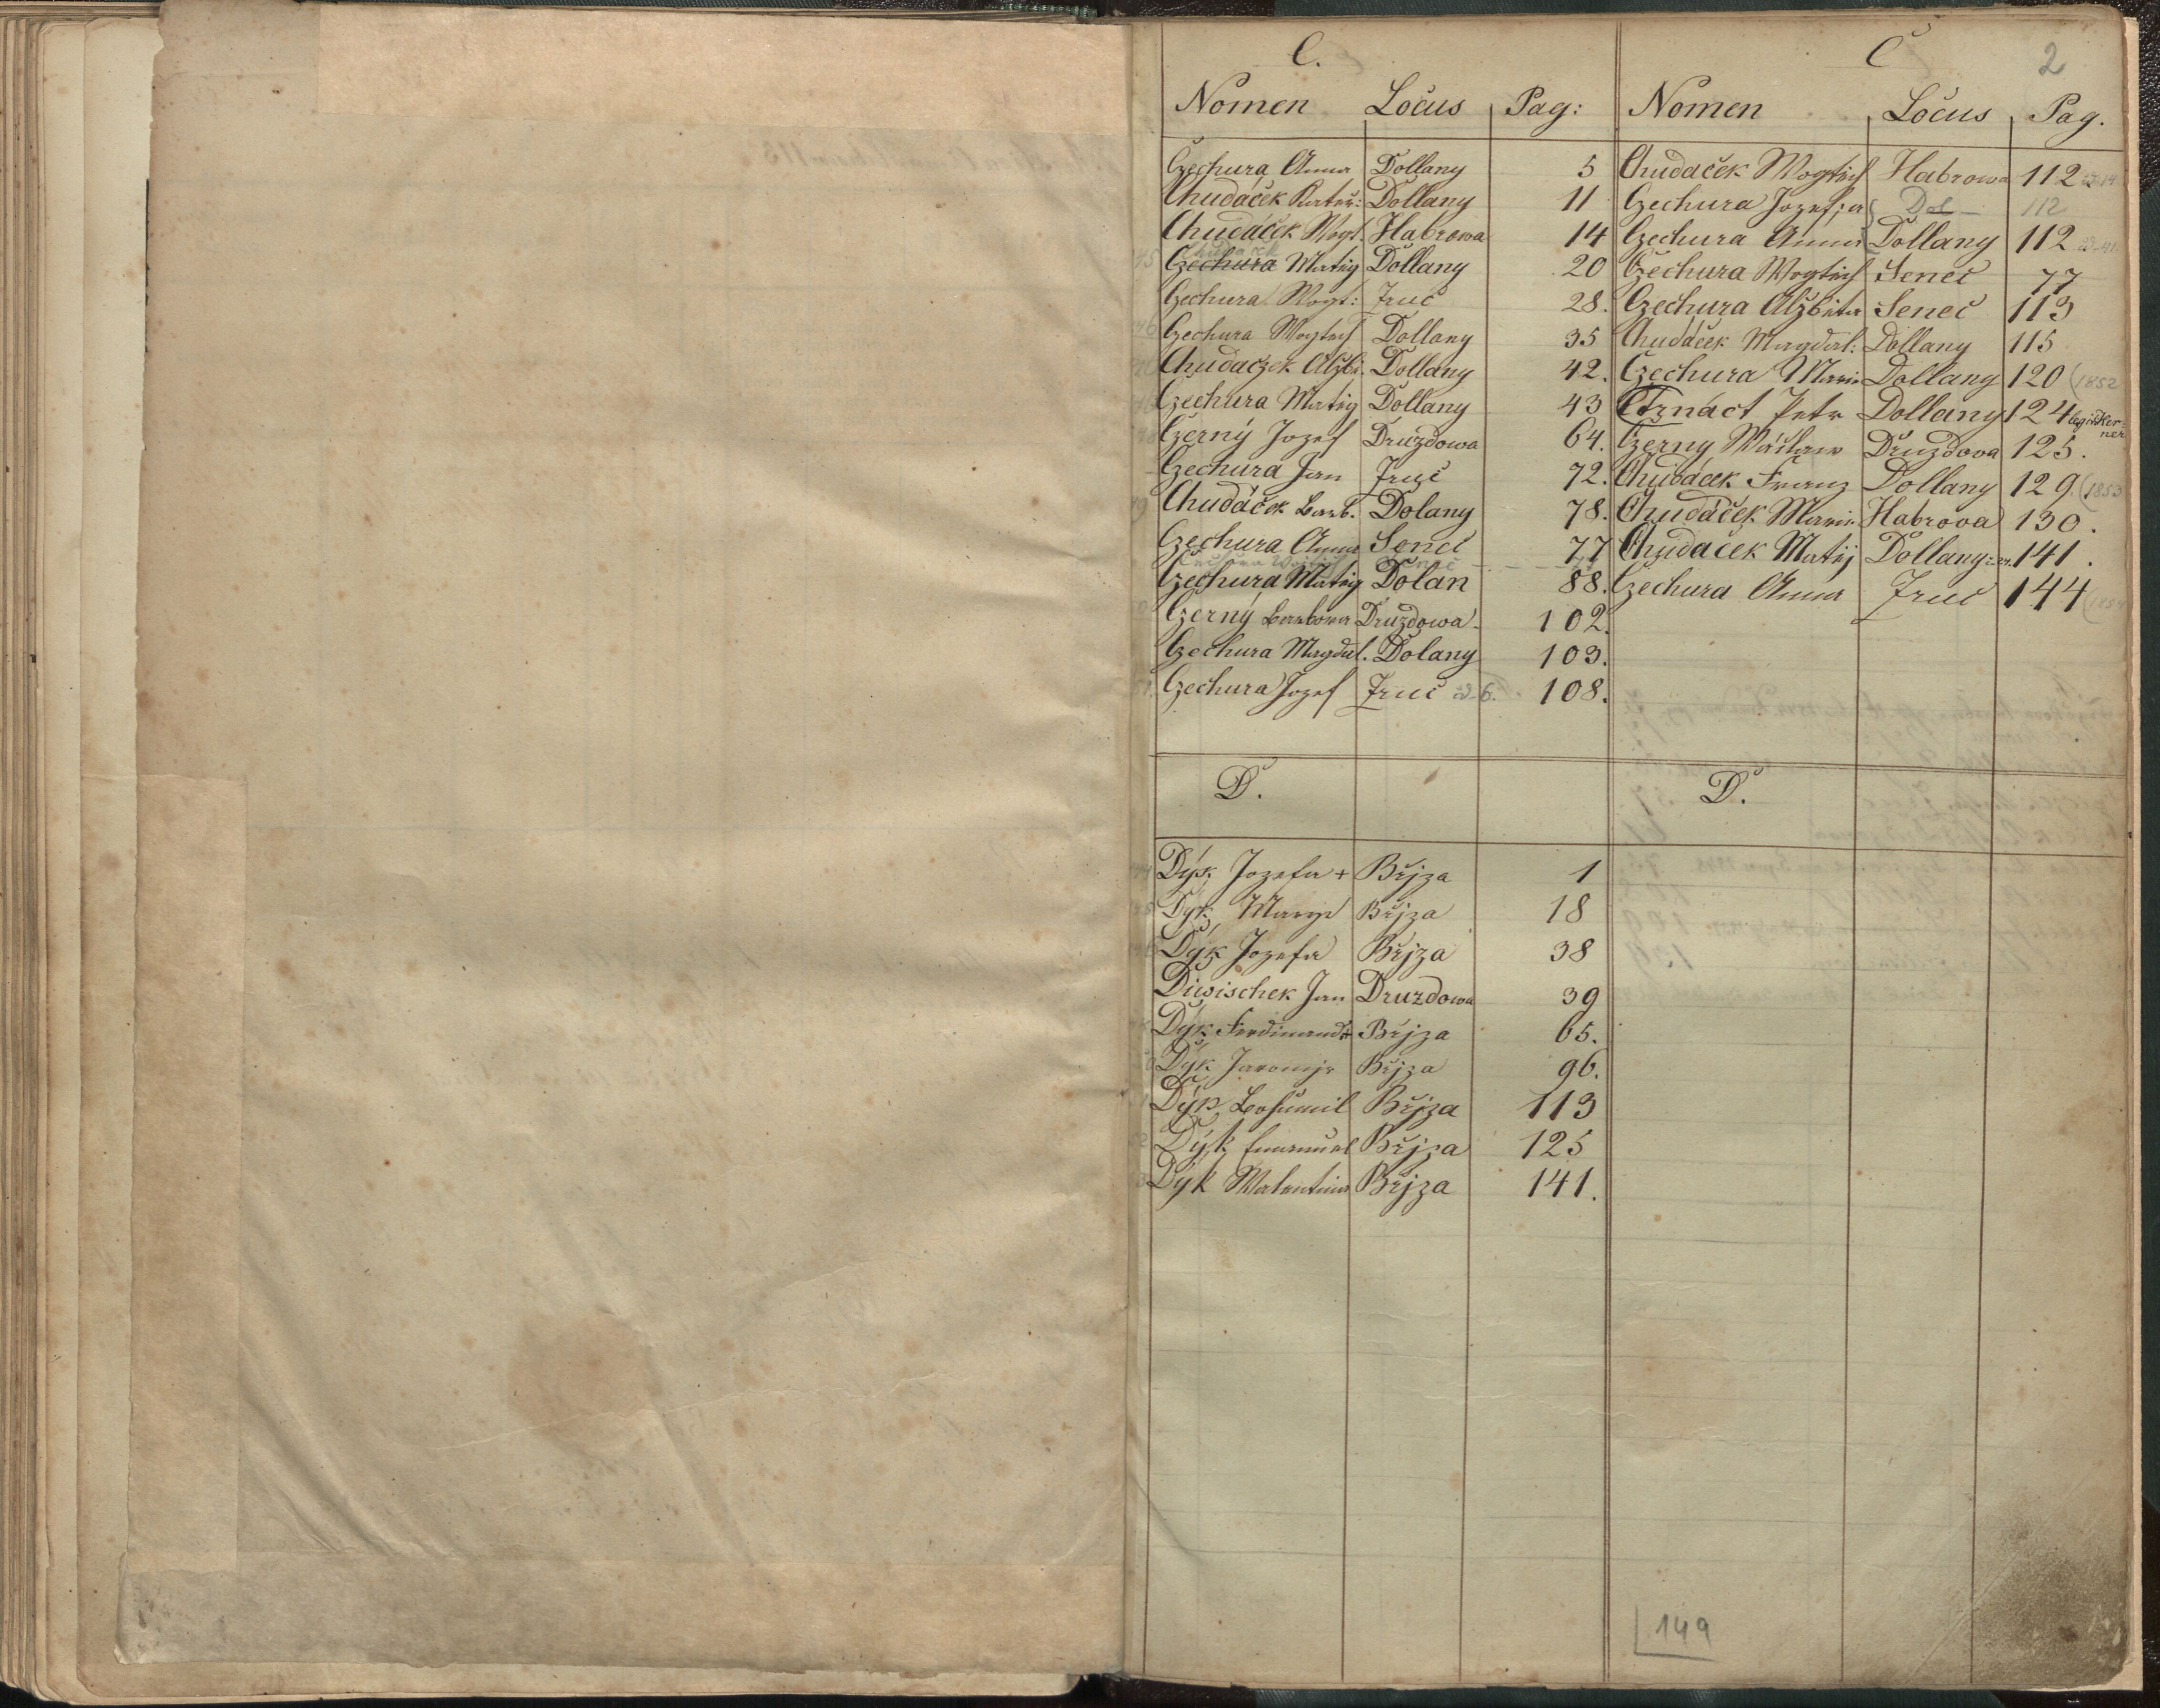 C.
Nomen Locus Pag:
Czechura Anna Dollany 5
Chudáček Kateř: Dollany 11
Chudáček Wogt. Habrowa 14
Chudáček
Czechura Matěg Dollany 20
Czechura Wogt: Jruč 28.
Czechura Wogtěch Dollany 35
Chudaczek Alžbi. Dollany 42.
Czechura Matěg Dollany 43
Czerný Jozef Druzdowa 64.
Czechura Jan Jruč 72.
Chudáček Barb. Dolany 78.
Czechura Anna Senec 77
Czechura Matěg Dolan 88.
Czerný Barbora Druzdowa 102.
Czechura Magdal. Dolany 103.
Czechura Jozef Jruč d. 6. 108.
C 2
Nomen Locus Pag.
Chudaček Wogtěch Habrowa 112
Czechura Jozefa Dol 112
Czechura Anna Dollany 112
Czechura Wogtěch Senec 77
Czechura Alžběta Senec 113
Chudáček Magdal: Dollany 115
Czechura Marie Dollany 120 (1852
Cżtrnáct Petr Dollany 124
Czerny Wáclaw Druzdova 125.
Chudáček Franz Dollany 129. (1853
Chudáček Marie Habrova 130.
Chudaček Matěj Dollany 141.
Czechura Anna Jruč 144
D.
Dýk Jozefa + Břjza 1
Dyk Marye Břjza 18
Dýk Jozefa Břjza 38
Diwischek Jan Druzdowa 39
Dýk Ferdinand Břjza 65.
Dýk Jaromjr Břjza 96.
Dýk Bohumil Břjza 113
Dýk Emanuel Břjza 125
Dýk Walentina Břjza 141.
D.
149